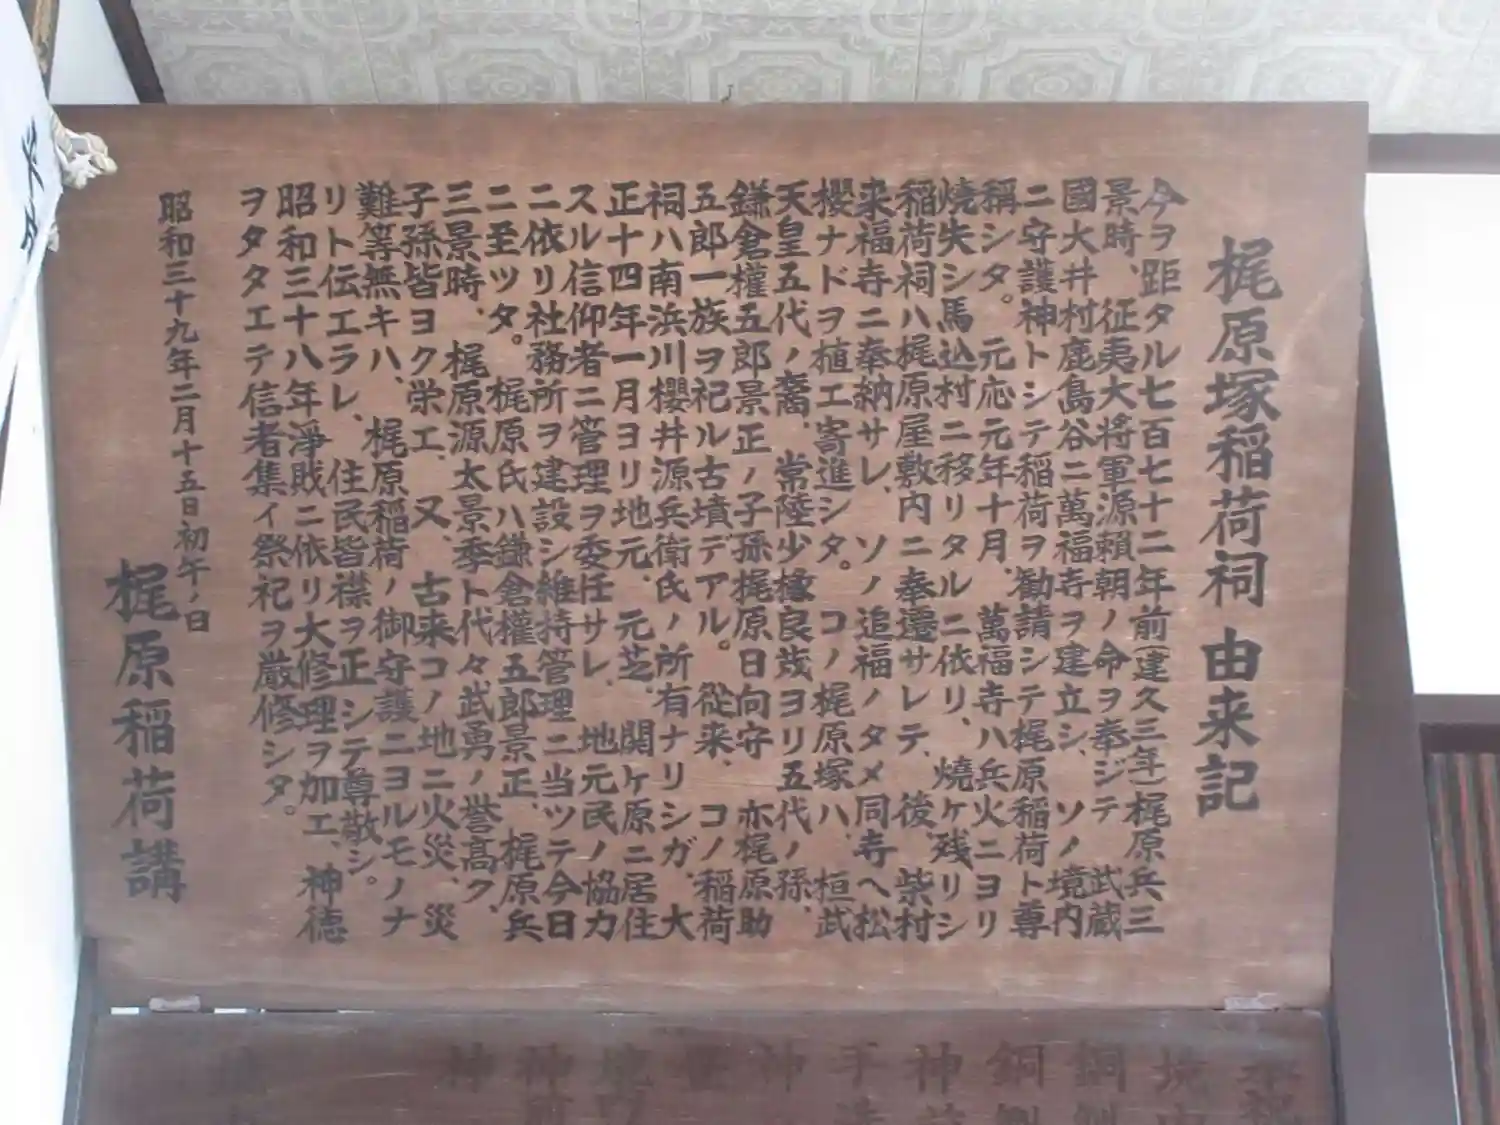 梶原塚稲荷祠 由来記
今ヲ距タル七百七十二年前(建久三年)梶原兵三
景時、征夷大将軍源頼朝ノ命ヲ奉ジテ 武蔵
國大井村鹿島谷ニ萬福寺ヲ建立シ、ソノ境内
ニ守護神トシテ稲荷ヲ勧請シテ梶原稲荷ト尊
稱シタ。元応元年十月、萬福寺ハ兵火ニヨリ
焼失シ馬込村ニ移リタルニ依リ、焼ケ残リシ
稲荷祠ハ梶原屋敷内ニ奉遷サレテ、後、柴村
来福寺ニ奉納サレ、ソノ追福ノタメ同寺ヘ松
櫻ナドヲ植エ寄進シタ。コノ梶原塚ハ、桓武
天皇五代ノ裔、常陸少掾良茂ヨリ五代ノ孫、
鎌倉權五郎景正ノ子孫梶原日向守 亦梶原助
五郎一族ヲ祀ル古墳デアル。従来、コノ稲荷
祠ハ南浜川櫻井源兵衛氏ノ所有ナリシガ、大
正十四年一月ヨリ地元、元芝、関ヶ原ニ居住
スル信仰者ニ管理ヲ委任サレ、地元民ノ協力
ニ依リ社務所ヲ建設シ維持管理ニ当ツテ今日
ニ至ツタ。梶原氏ハ鎌倉權五郎景正、梶原兵
三景時、梶原源太景季ト代々武勇ノ誉高ク、
子孫皆ヨク栄エ、又、古来コノ地ニ火災、災
難等無キハ、梶原稲荷ノ御守護ニヨルモノナ
リト伝エラレ、住民皆襟ヲ正シテ尊敬シ。
昭和三十八年淨財ニ依リ大修理ヲ加エ、神徳
ヲタタエテ信者集イ祭祀ヲ厳修シタ。
昭和三十九年二月十五日初午ノ日
梶原稲荷講